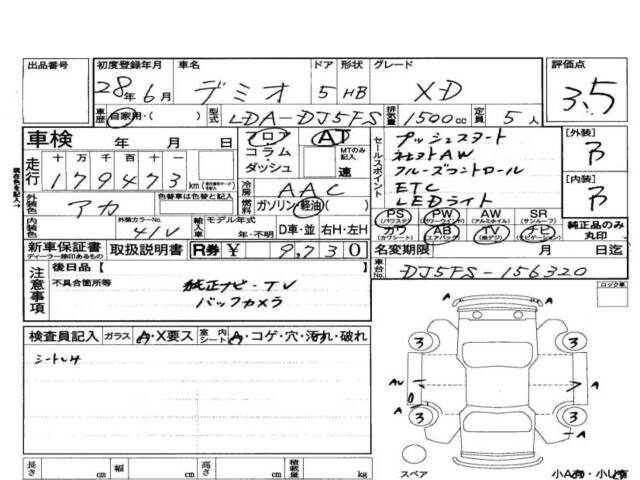 出品番号 初度登録年月 車名 ドア 形状 グレード 評価点
28年6月 デミオ 5 HB XD 3.5
車歴 自家用・( ) 型式 LDA-DJ5FS 排気量 1500cc 定員 5人
車検 年 月 日 フロア AT セールスポイント プッシュスタート [外装] B
コラム・ダッシュ MTのみ記入 速 社外AW
走行 十万 万 千 百 十 一 179473 km 冷房 AAC クルーズコントロール [内装] B
ETC
LEDライト
外装色 アカ 色替車は色替と記入 燃料 ガソリン・軽油( ) PS PW AW SR
(パワステ) (パワーウインドウ) (アルミホイル) (サンルーフ)
内装色 外装カラーNo. 41V 輸入車 モデル年式 年・不明 D車・並 右H・左H カワ AB TV ナビ 純正品のみ丸印
(カワシート) (エアバック) (地デジ) (ナビゲーション)
新車保証書 取扱説明書 R券 ¥ 9,730 名変期限 月 日迄
ディーラー捺印あるもの
車台No. DJ5FS-156320
注意事項 後日品【 】
不具合箇所等 純正ナビ-TV
バックカメラ
ロック車
検査員記入 ガラス A・X要ス 室内シート A・コゲ・穴・汚れ・破れ
3 3
A
A
3 3
A
スペア
長さ cm 幅 cm 高さ cm 積載量 kg 小A有・小U有